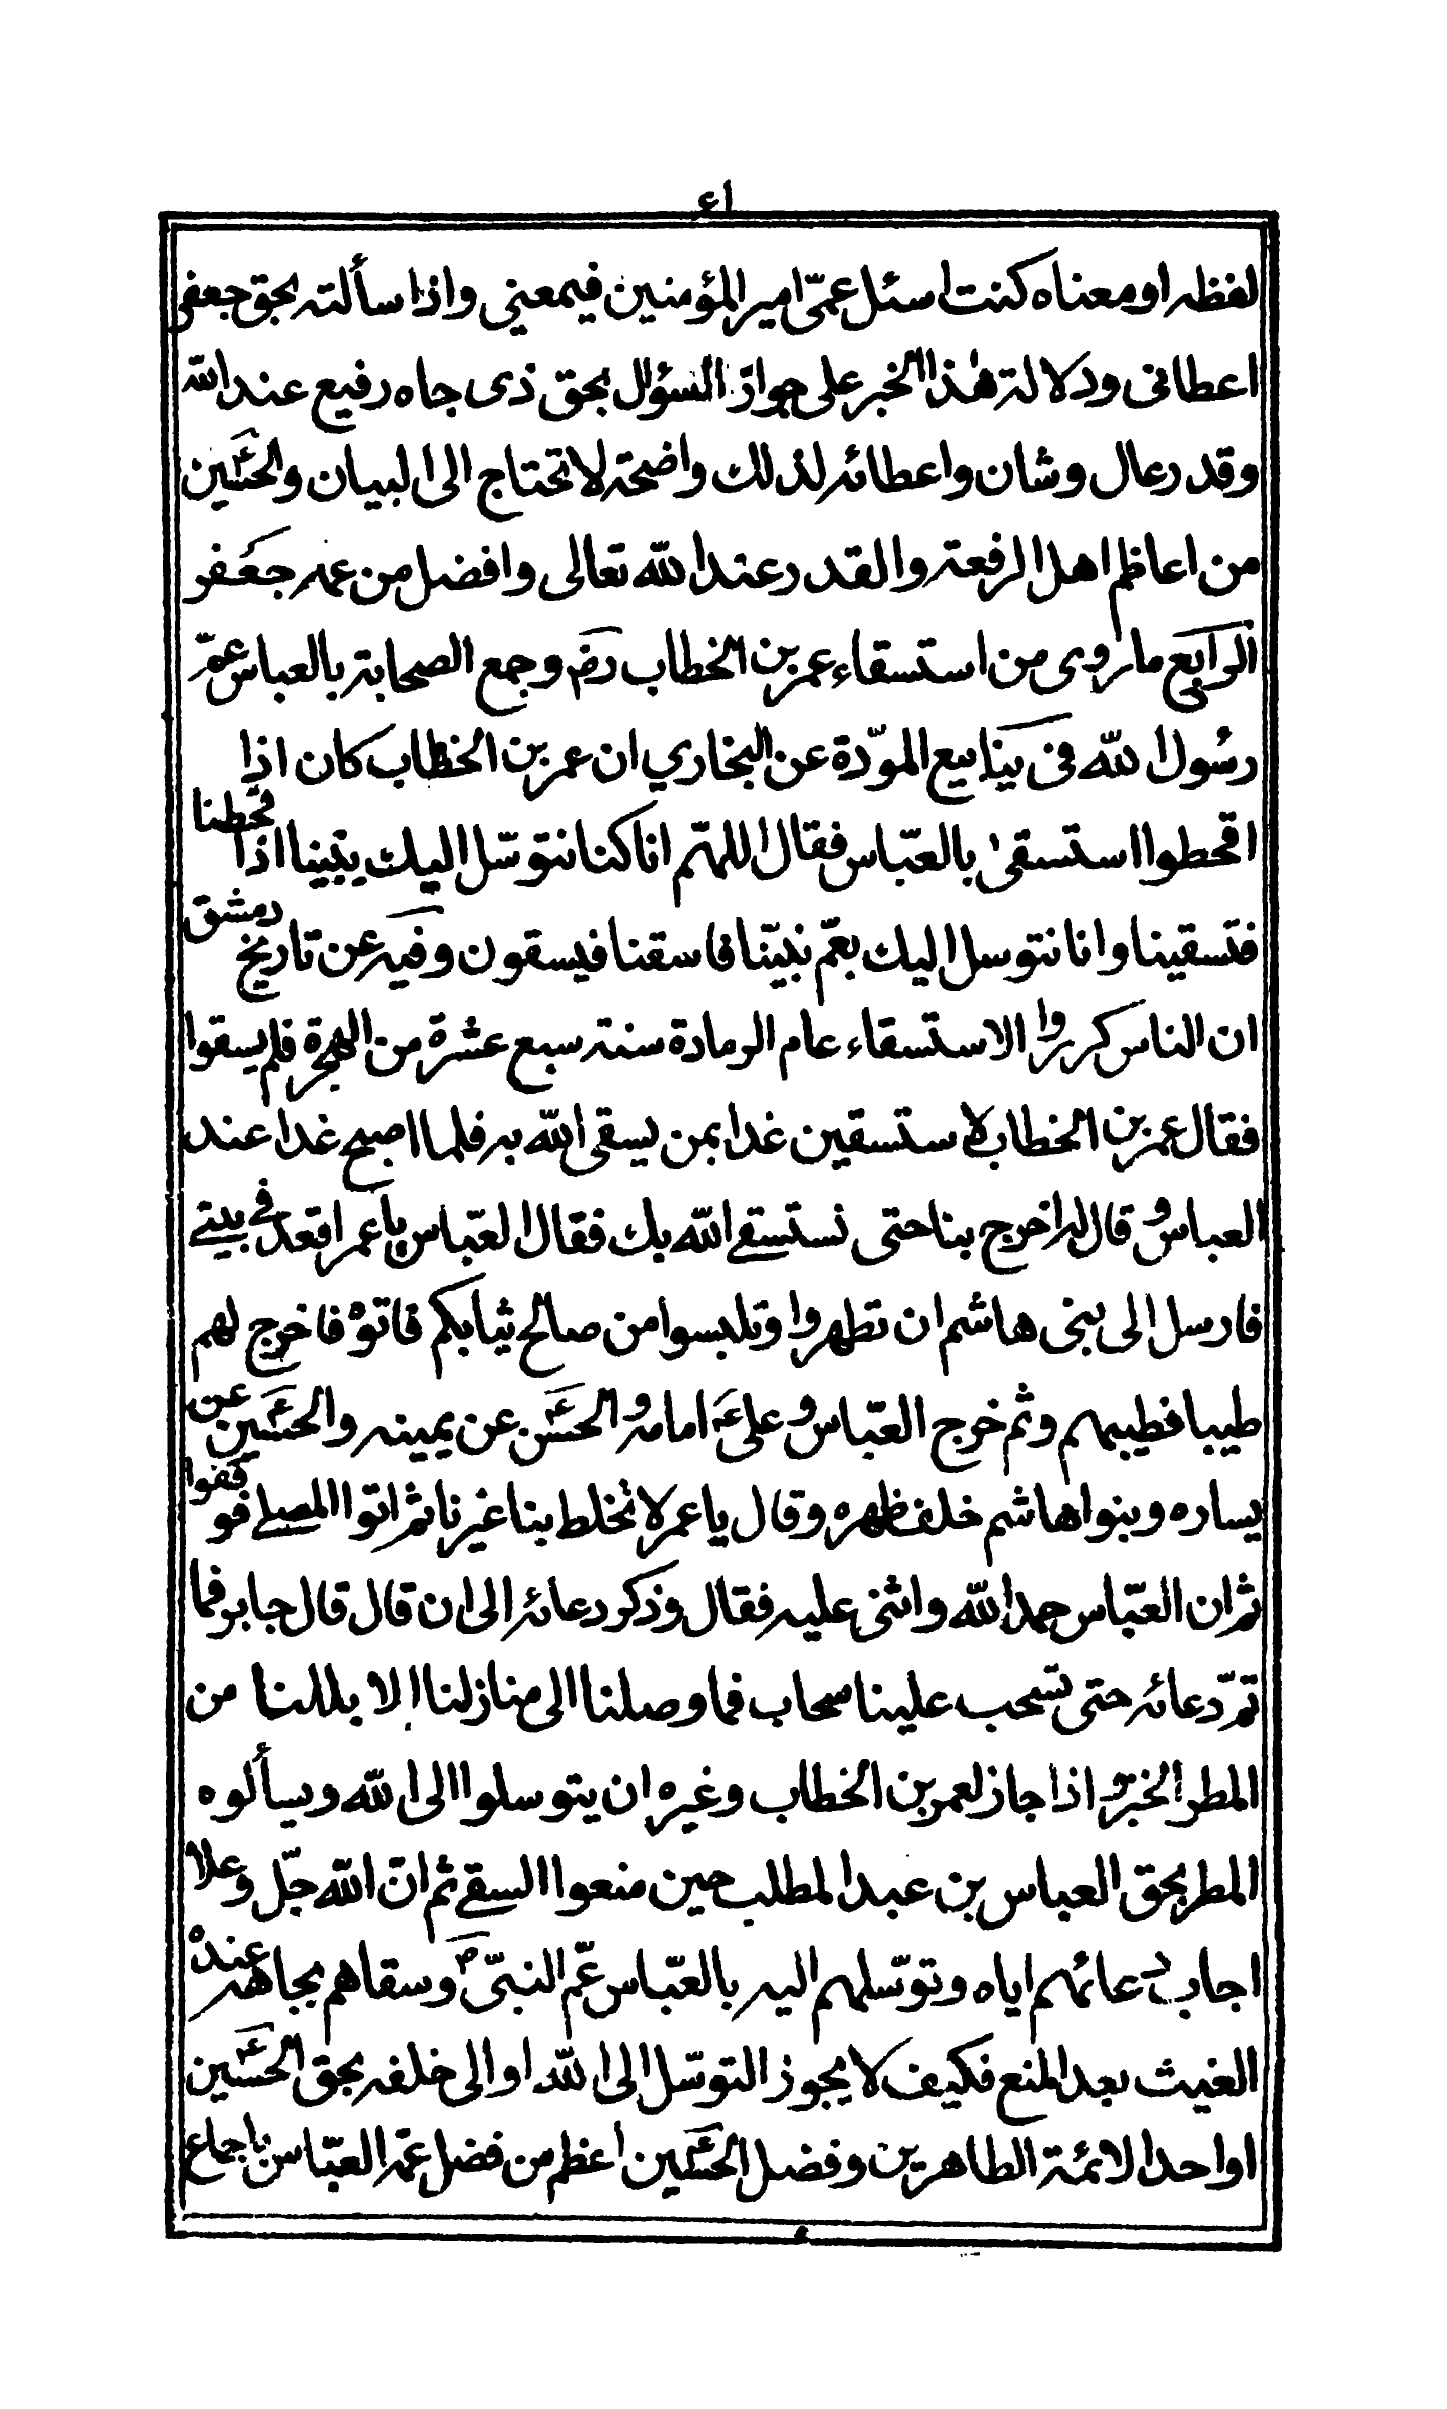 ٤١
لفظه او معناه كنت اسئل عمّى امير المؤمنين فيمعني واذا سألته بحق جعفر
اعطانى ودلالة هٰذا الخبر على جواز السؤال بحق ذى جاه رفيع عند الله
وقدر عال وشان واعطائه لذلك واضحة لا تحتاج الى البيان والحسين ع
من اعاظم اهل الرفعة والقدر عند الله تعالى وافضل من عمه جعفر
الرابع ما روى من استسقاء عمر بن الخطاب رض وجمع الصحابة بالعباس عم
رسول الله فى ينابيع المودّة عن البخاري ان عمر بن الخطاب كان اذا
اقحطوا استسقىٰ بالعبّاس فقال اللهمّ انا كنا نتوسّل اليك بنبينا اذا قحطنا
فتسقينا وانا نتوسل اليك بعمّ نبيّنا فاسقنا فيسقون وفيه عن تاريخ دمشق
ان الناس كرروا الاستسقاء عام الرمادة سنة سبع عشرة من الهجرة فلم يسقوا
فقال عمر بن الخطاب لاستسقين غدا بمن يسقى الله به فلما اصبح غدا عند
العباس و قال له اخرج بنا حتى نستسقے الله بك فقال العبّاس يا عمر اقعد فے بيتے
فارسل الى بنى هاشم ان تطهروا وتلبسوا من صالح ثيابكم فاتوه فاخرج لهم
طيبا فطيبهم وثم خرج العبّاس و على ع امامه و الحسن ع عن يمينه والحسين ع عن
يساره وبنوا هاشم خلف ظهره وقال يا عمر لا تخلط بنا غيرنا ثم اتوا المصلے فوقفوا
ثم ان العبّاس حمد الله واثنى عليه فقال وذكر دعائه الى ان قال قال جابر فما
تمّ دعائه حتى تسّحب علينا سحاب فما وصلنا الى منازلنا الا بللنا من
المطر الخبر و اذا جاز لعمر بن الخطاب وغيره ان يتوسلوا الى الله ويسألوه
المطر بحق العباس بن عبد المطلب حين منعوا السقے ثم انّ الله جلّ وعلا
اجاب دعائهم اياه وتوسّلهم اليه بالعبّاس عمّ النبىّ ص وسقاهم بجاهه عنده
الغيث بعد المنع فكيف لا يجوز التوسّل الى الله او الى خلفه بحق الحسين ع
او احد الائمة الطاهرين وفضل الحسين ع اعظم من فضل عمّه العبّاس باجماع